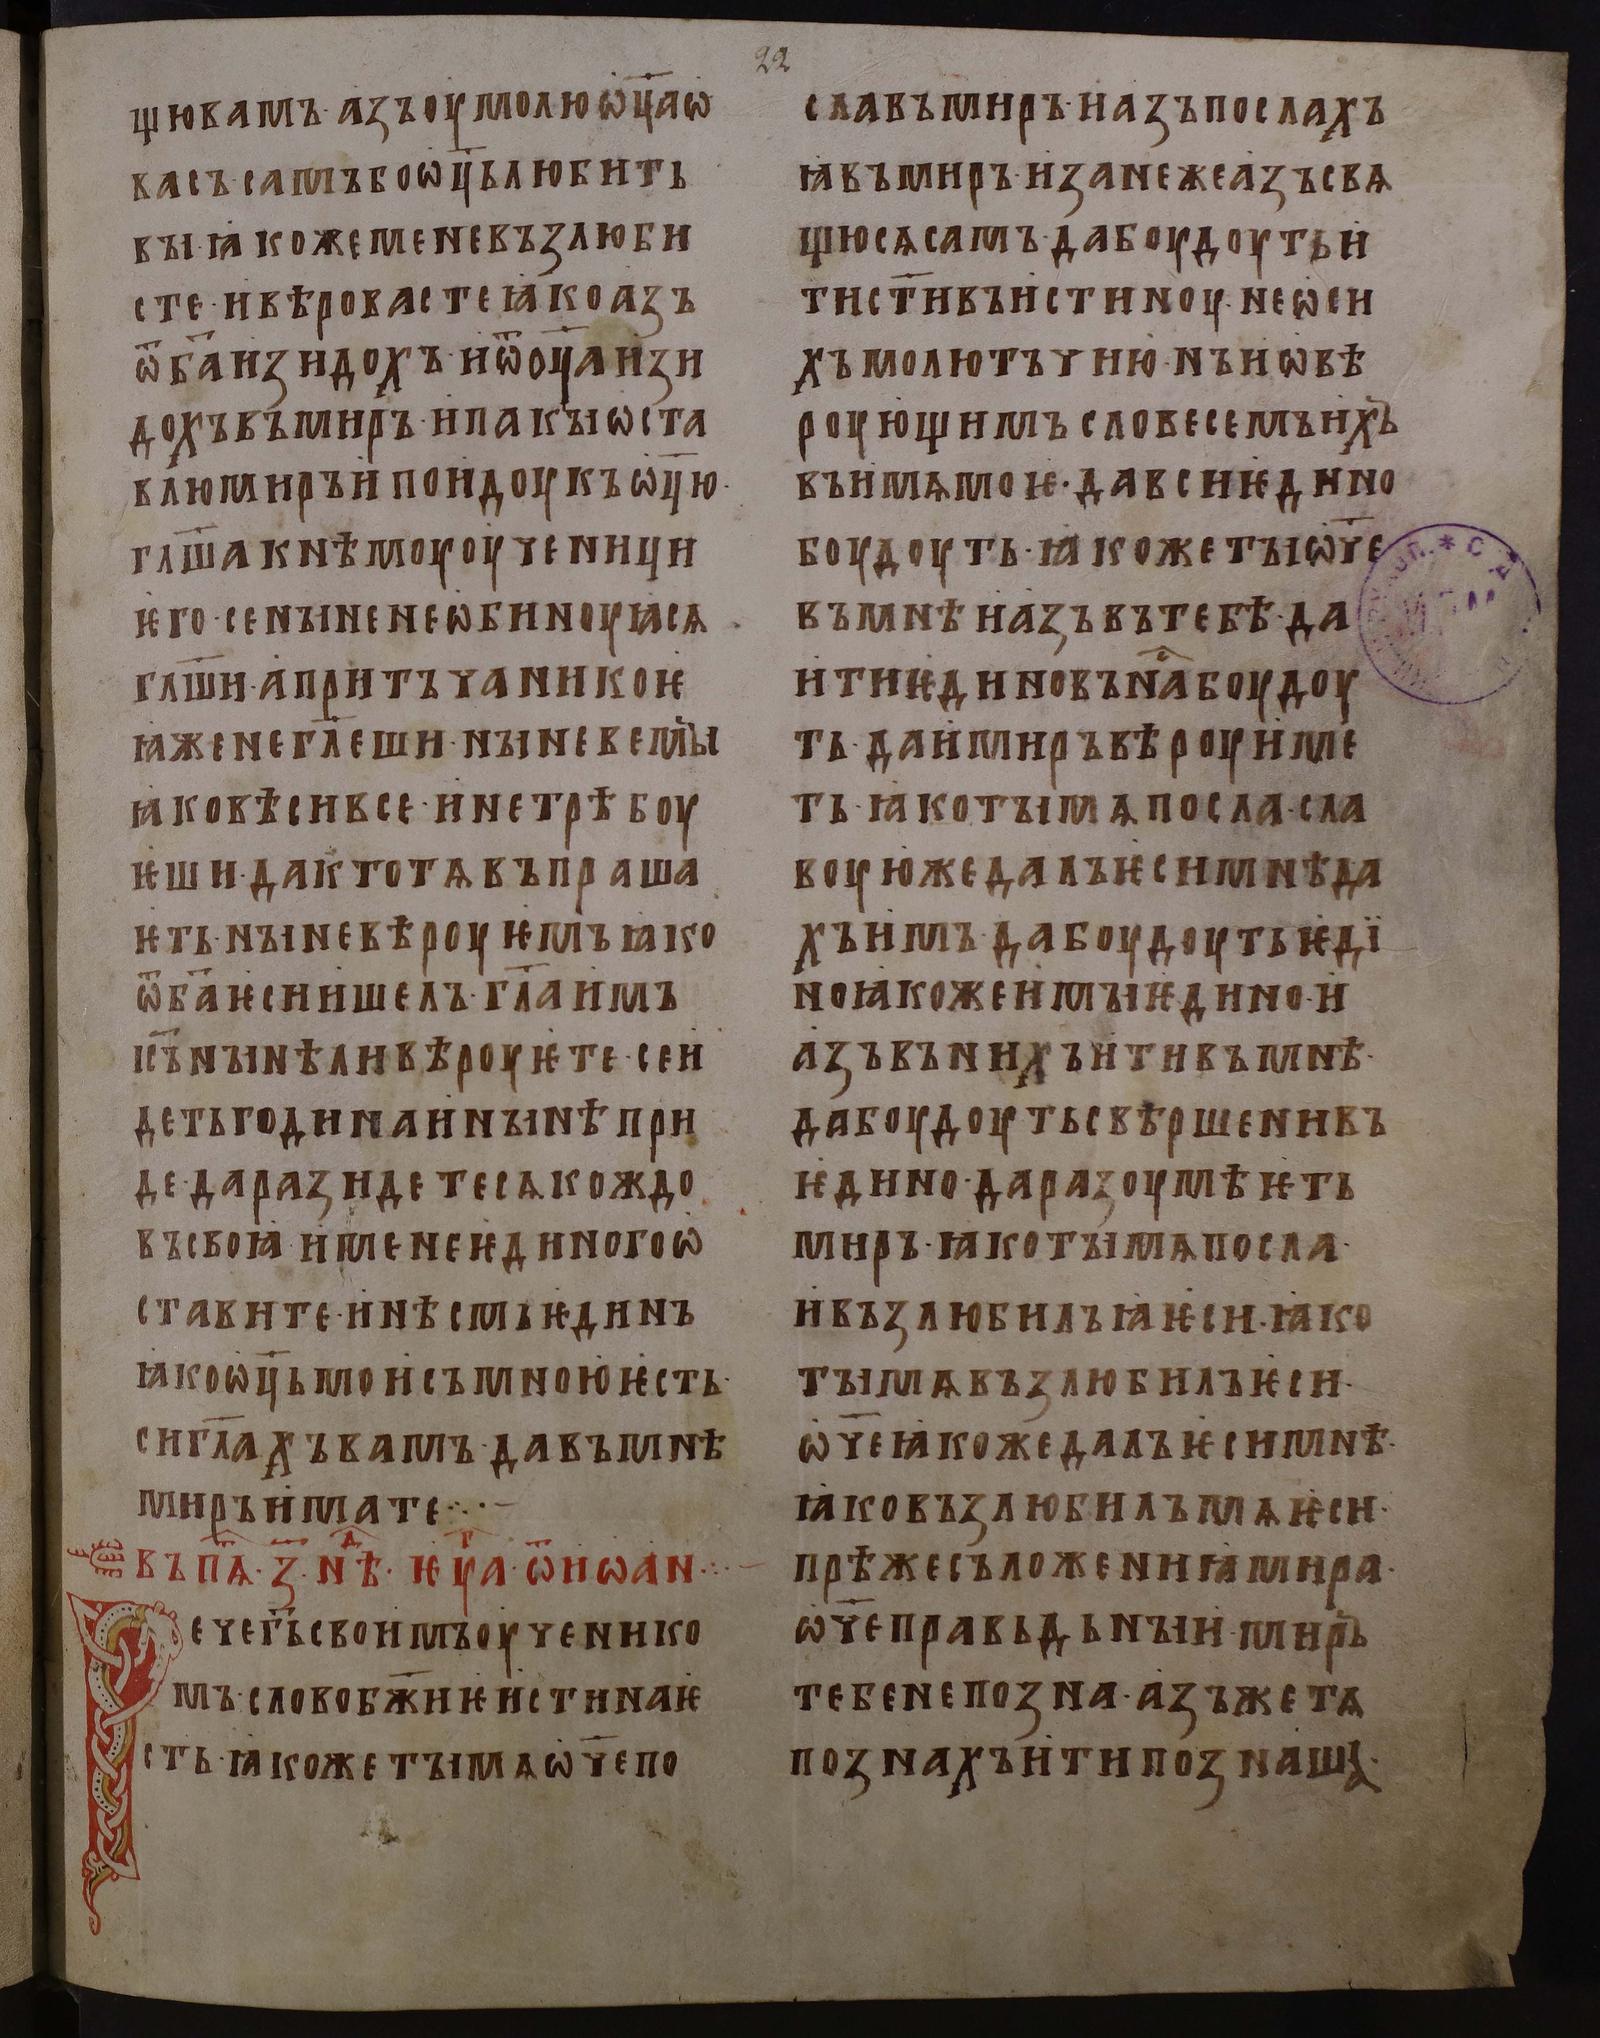 22
щювамъ· азъ оумолю ѡц҃а ѡ
васъ· самъ бо ѡц҃ь любить
вы· ꙗко же мене възлюби
сте· и вѣровасте ꙗко азъ
ѿ ба҃ изидохъ· и ѿ оц҃а изи
дохъ въ миръ· и пакы ѡста
влю миръ и поидоу къ ѡц҃ю·
глш҃а к нѣмоу оученици
ѥго· се ныне не ѡбиноуꙗсѧ
глш҃и· а притъча никоѥ
ꙗже не гл҃еши· ныне вемы
ꙗко вѣси все· и не трѣбоу
ѥши· да кто тѧ въпраша
ѥть· ныне вѣроуѥмъ ꙗко
ѿ ба҃ ѥси ишелъ· гл҃а имъ
ис҃ъ нынѣ ли вѣроуѥте· се и
деть година и нынѣ при
де· да разидетесѧ кождо
въ своꙗ и мене ѥдиного ѡ
ставите· и нѣсмь ѥдинъ
ꙗко ѡц҃ь мои съ мною ѥсть·
си гл҃ахъ вамъ· да въ мнѣ
миръ имате·:·—
въ пѧ҃· з҃· нѣ҃д· ѥу҃г҃а· ѿ иѡан·:·—
ече г҃ь своимъ оученико
мъ· слово бж҃иѥ истина ѥ
сть· ꙗко же ты мѧ ѡч҃е по
сла въ миръ· и азъ послахъ
ꙗ въ миръ· и занеже азъ свѧ
щюсѧ самъ· да боудоуть и
ти ст҃и въ истиноу· не ѡ си
хъ молю тъчию· нъ и ѡ вѣ
роующимъ словесемъ ихъ
въ имѧ моѥ· да вси ѥдино
боудоуть· ꙗко же ты ѡч҃е
въ мнѣ и азъ въ тебѣ· да
и ти ѥдино въ на҃с боудоу
ть· да и миръ вѣроу име
ть· ꙗко ты мѧ посла· сла
воу юже далъ ѥси мнѣ да
хъ имъ· да боудоуть ѥді
но ꙗко же и мы ѥдино· и
азъ въ нихъ и ти въ мнѣ·
да боудоуть свѣршени въ
ѥдино· да разоумѣѥть
миръ· ꙗко ты мѧ посла·
и възлюбилъ ꙗ ѥси· ꙗко
ты мѧ възлюбилъ ѥси·
ѡч҃е ꙗко же далъ ѥси мнѣ·
ꙗко възлюбилъ мѧ ѥси·
прѣже съложениꙗ мира·
ѡч҃е правьдьныи· миръ
тебе не позна· азъ же тѧ
познахъ и ти познашѧ·